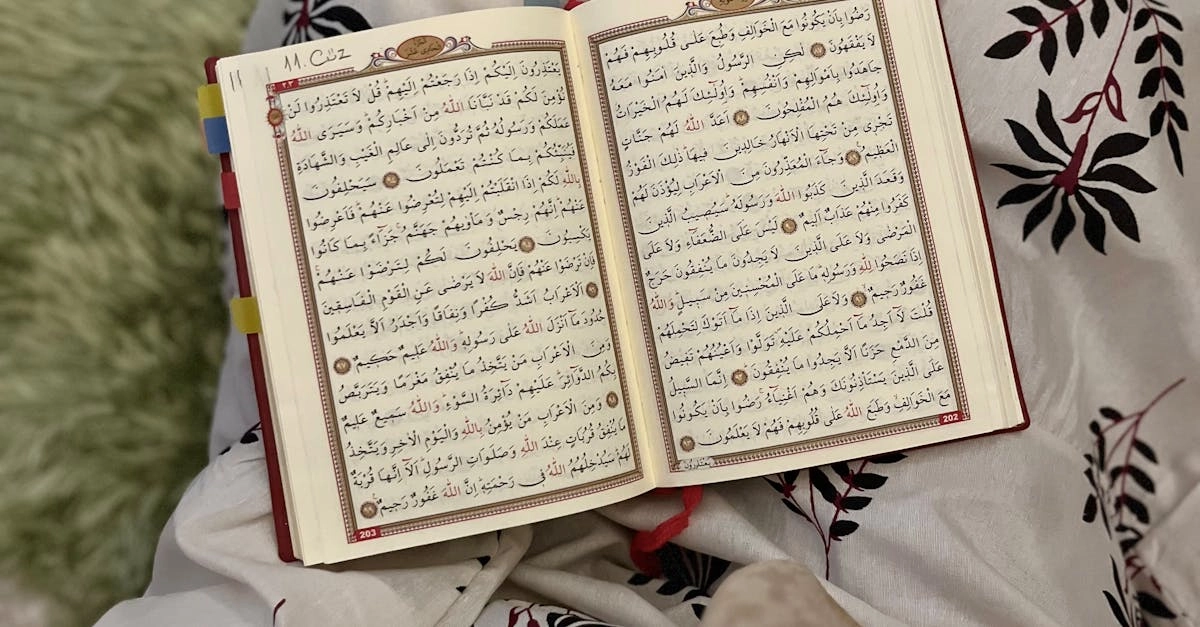 رَضُوا بِاَنْ يَكُونُوا مَعَ الْخَوَالِفِ وَطُبِعَ عَلٰى قُلُوبِهِمْ فَهُمْ
لَا يَفْقَهُونَ لٰكِنِ الرَّسُولُ وَالَّذِينَ اٰمَنُوا مَعَهُ
جَاهَدُوا بِاَمْوَالِهِمْ وَاَنْفُسِهِمْ وَاُولٰٓئِكَ لَهُمُ الْخَيْرَاتُ
وَاُولٰٓئِكَ هُمُ الْمُفْلِحُونَ اَعَدَّ اللّٰهُ لَهُمْ جَنَّاتٍ
تَجْرِي مِنْ تَحْتِهَا الْاَنْهَارُ خَالِدِينَ فِيهَا ذٰلِكَ الْفَوْزُ
الْعَظِيمُ وَجَٓاءَ الْمُعَذِّرُونَ مِنَ الْاَعْرَابِ لِيُؤْذَنَ لَهُمْ
وَقَعَدَ الَّذِينَ كَذَبُوا اللّٰهَ وَرَسُولَهُ سَيُصِيبُ الَّذِينَ
كَفَرُوا مِنْهُمْ عَذَابٌ اَلِيمٌ لَيْسَ عَلَى الضُّعَفَٓاءِ وَلَا عَلَى
الْمَرْضٰى وَلَا عَلَى الَّذِينَ لَا يَجِدُونَ مَا يُنْفِقُونَ حَرَجٌ
اِذَا نَصَحُوا لِلّٰهِ وَرَسُولِهِ مَا عَلَى الْمُحْسِنِينَ مِنْ سَبِيلٍ وَاللّٰهُ
غَفُورٌ رَحِيمٌ وَلَا عَلَى الَّذِينَ اِذَا مَٓا اَتَوْكَ لِتَحْمِلَهُمْ
قُلْتَ لَٓا اَجِدُ مَٓا اَحْمِلُكُمْ عَلَيْهِ تَوَلَّوْا وَاَعْيُنُهُمْ تَفِيضُ
مِنَ الدَّمْعِ حَزَنًا اَلَّا يَجِدُوا مَا يُنْفِقُونَ اِنَّمَا السَّبِيلُ
عَلَى الَّذِينَ يَسْتَأْذِنُونَكَ وَهُمْ اَغْنِيَٓاءُ رَضُوا بِاَنْ يَكُونُوا
مَعَ الْخَوَالِفِ وَطَبَعَ اللّٰهُ عَلٰى قُلُوبِهِمْ فَهُمْ لَا يَعْلَمُونَ
يَعْتَذِرُونَ
202
11
11. Cüz
يَعْتَذِرُونَ اِلَيْكُمْ اِذَا رَجَعْتُمْ اِلَيْهِمْ قُلْ لَا تَعْتَذِرُوا لَنْ
نُؤْمِنَ لَكُمْ قَدْ نَبَّاَنَا اللّٰهُ مِنْ اَخْبَارِكُمْ وَسَيَرَى اللّٰهُ
عَمَلَكُمْ وَرَسُولُهُ ثُمَّ تُرَدُّونَ اِلٰى عَالِمِ الْغَيْبِ وَالشَّهَادَةِ
فَيُنَبِّئُكُمْ بِمَا كُنْتُمْ تَعْمَلُونَ سَيَحْلِفُونَ
بِاللّٰهِ لَكُمْ اِذَا انْقَلَبْتُمْ اِلَيْهِمْ لِتُعْرِضُوا عَنْهُمْ فَاَعْرِضُوا
عَنْهُمْ اِنَّهُمْ رِجْسٌ وَمَأْوٰيهُمْ جَهَنَّمُ جَزَٓاءً بِمَا كَانُوا
يَكْسِبُونَ يَحْلِفُونَ لَكُمْ لِتَرْضَوْا عَنْهُمْ
فَاِنْ تَرْضَوْا عَنْهُمْ فَاِنَّ اللّٰهَ لَا يَرْضٰى عَنِ الْقَوْمِ الْفَاسِقِينَ
اَلْاَعْرَابُ اَشَدُّ كُفْرًا وَنِفَاقًا وَاَجْدَرُ اَلَّا يَعْلَمُوا
حُدُودَ مَٓا اَنْزَلَ اللّٰهُ عَلٰى رَسُولِهِ وَاللّٰهُ عَلِيمٌ حَكِيمٌ
وَمِنَ الْاَعْرَابِ مَنْ يَتَّخِذُ مَا يُنْفِقُ مَغْرَمًا وَيَتَرَبَّصُ
بِكُمُ الدَّوَٓائِرَ عَلَيْهِمْ دَٓائِرَةُ السَّوْءِ وَاللّٰهُ سَمِيعٌ عَلِيمٌ
وَمِنَ الْاَعْرَابِ مَنْ يُؤْمِنُ بِاللّٰهِ وَالْيَوْمِ الْاٰخِرِ وَيَتَّخِذُ
مَا يُنْفِقُ قُرُبَاتٍ عِنْدَ اللّٰهِ وَصَلَوَاتِ الرَّسُولِ اَلَٓا اِنَّهَا قُرْبَةٌ
لَهُمْ سَيُدْخِلُهُمُ اللّٰهُ فِي رَحْمَتِهِ اِنَّ اللّٰهَ غَفُورٌ رَحِيمٌ
203